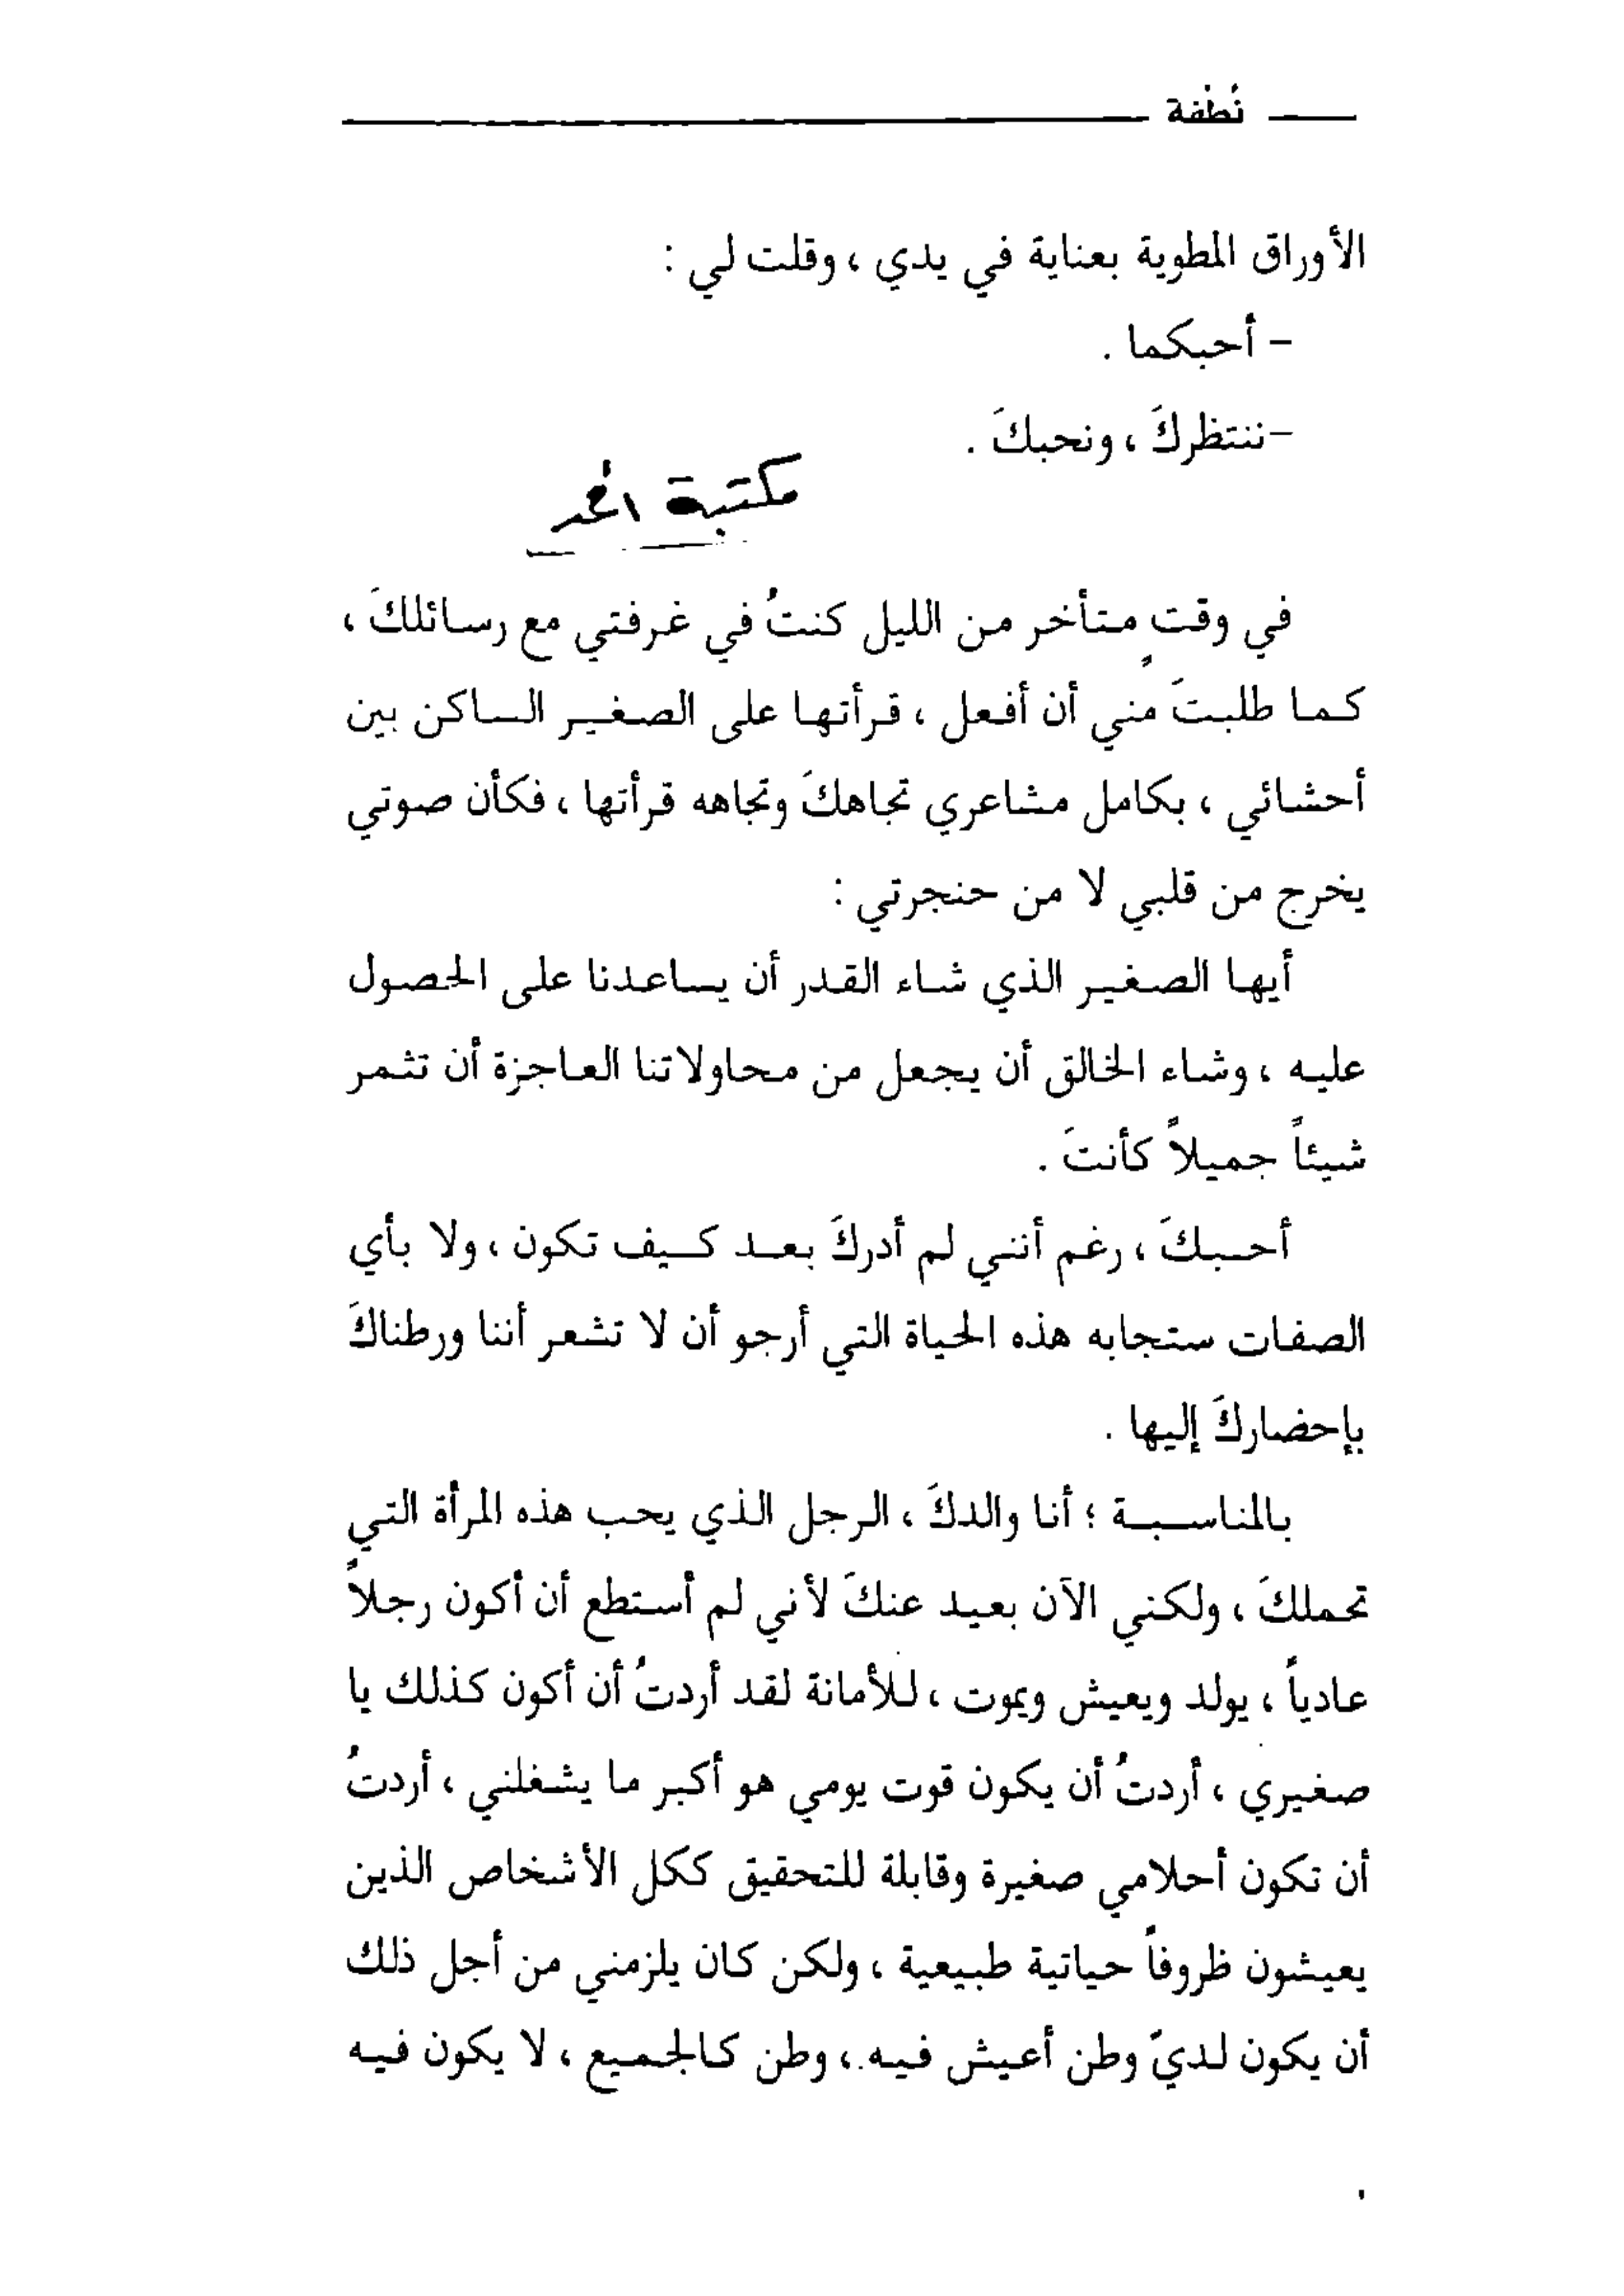 نُطْفة
الأوراق المطوية بعناية في يدي ، وقلت لي :
- أحبكما .
-ننتظركَ ، ونحبكَ .
مكتبة
في وقت متأخر من الليل كنتُ في غرفتي مع رسائلكَ ،
كما طلبتَ مني أن أفعل ، قرأتها على الصغير الساكن بين
أحشائي ، بكامل مشاعري تجاهكَ وتجاهه قرأتها ، فكأن صوتي
يخرج من قلبي لا من حنجرتي :
أيها الصغير الذي شاء القدر أن يساعدنا على الحصول
عليه ، وشاء الخالق أن يجعل من محاولاتنا العاجزة أن تثمر
شيئاً جميلاً كأنتَ .
أحبكَ ، رغم أنني لم أدركَ بعد كيف تكون ، ولا بأي
الصفات ستجابه هذه الحياة التي أرجو أن لا تشعر أننا ورطناكَ
بإحضاركَ إليها .
بالمناسبة ؛ أنا والدكَ ، الرجل الذي يحب هذه المرأة التي
تحملكَ ، ولكني الآن بعيد عنكَ لأني لم أستطع أن أكون رجلاً
عادياً ، يولد ويعيش ويموت ، للأمانة لقد أردتُ أن أكون كذلك يا
صغيري ، أردتُ أن يكون قوت يومي هو أكبر ما يشغلني ، أردتُ
أن تكون أحلامي صغيرة وقابلة للتحقيق ككل الأشخاص الذين
يعيشون ظروفاً حياتية طبيعية ، ولكن كان يلزمني من أجل ذلك
أن يكون لديّ وطن أعيش فيه ، وطن كالجميع ، لا يكون فيه